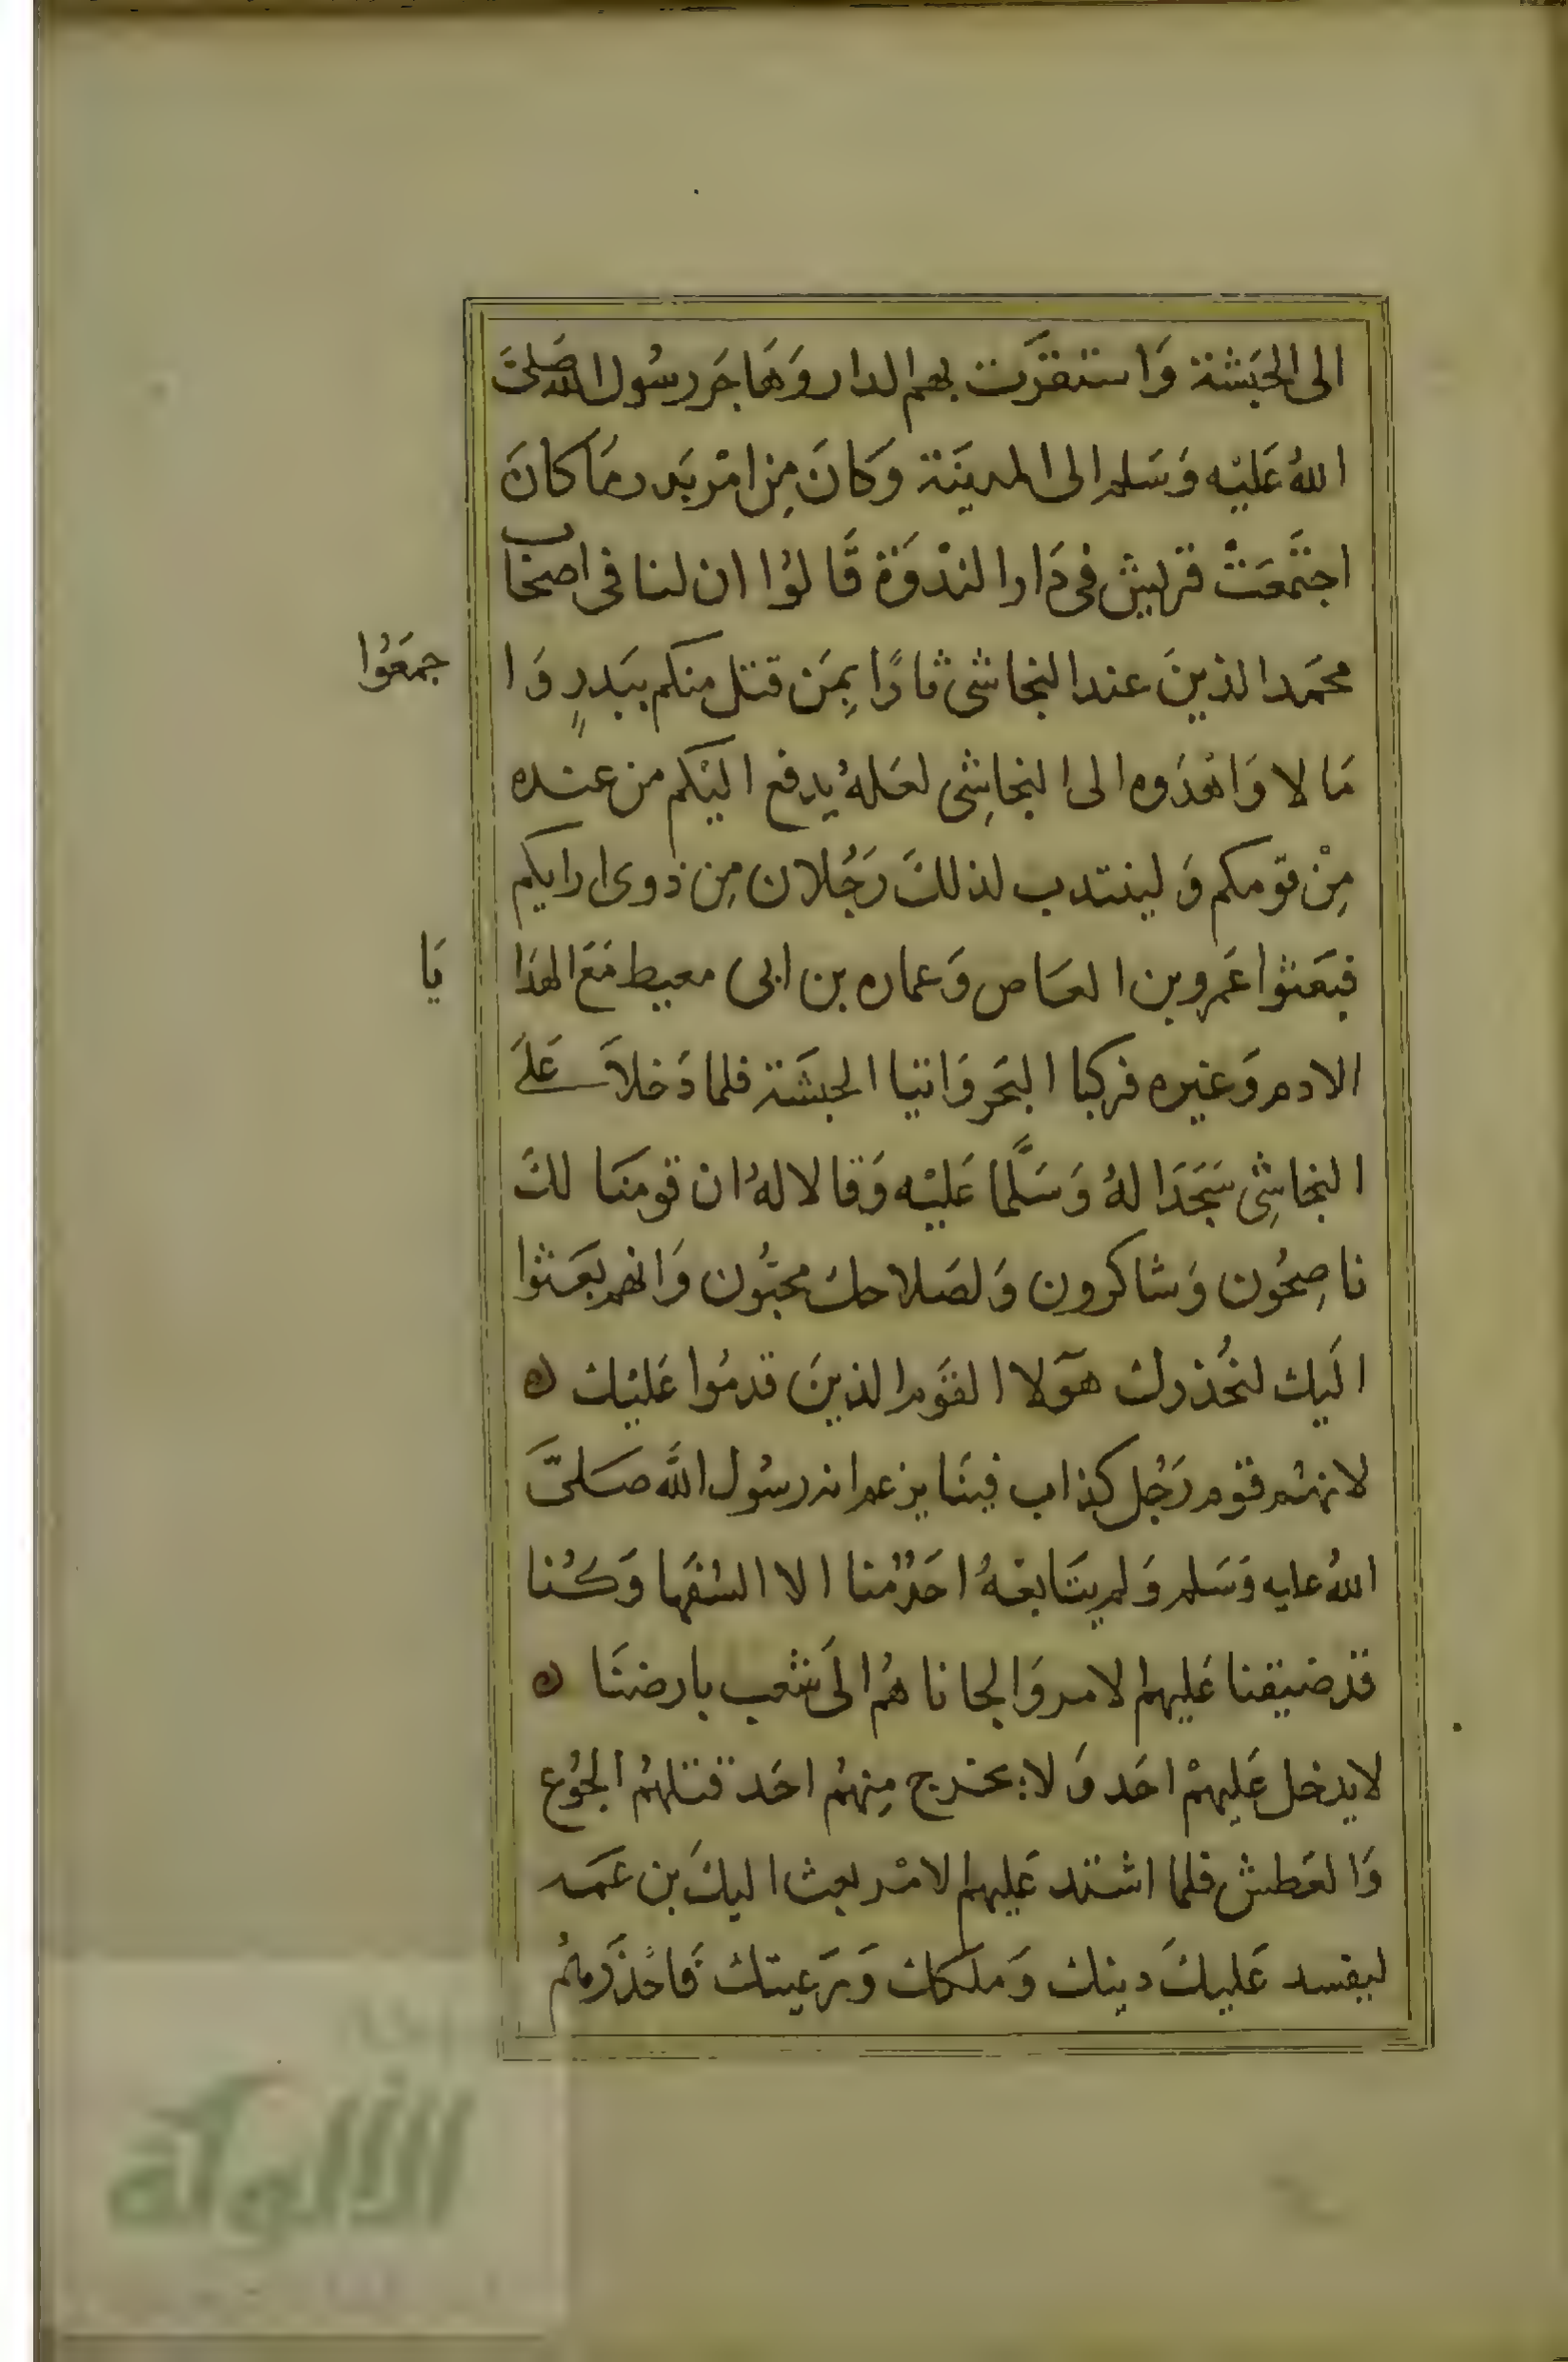 الى الحَبَشة وَاستقرَّت بهم الدار وَهَاجَر رسُول الله صَلىَّ
اللهُ عَليْه وَسَلم الى المدينَة وَكانَ مِن امْر بَدر مَا كانَ
اجتَّمعَتْ قريش فى دَار الندْوَة قَالوُا ان لنا فى اصحَاب
محمَد الذينَ عند النجاشى ثارًا بِمَن قتل منكم ببَدرٍ وَا جمعَوُا
مَالا وَاهْدَوه الى النجاشِى لعَلهُ يدفع اليْكم من عنده
مِنْ قومكم وَلينتدب لذلكَ رَجُلان مِن ذوى ارايكم
فبَعَثوا عَمروبن العَاص وَعماره بن ابى معيط مَعَ الهدَا يَا
الادم وَغيره فركبا البَحر وَاتيا الحبشَة فلما دَخلاَ عَلَے
النجاشِى سَجَدَا لهُ وَسَلَّما عَليْه وَقالا لهُ ان قومنَا لكَ
ناصِحُون وَشاكرون وَلصَلاحك محبُّون وَانهم بعَثوا
اليَك لنحُذرك هوٓلا القوَم الذينَ قدمُوا عَليْك ۞
لانهُم قوم رَجُل كذاب فينَا يزعم انه رسُول اللّه صَلىَّ
اللهُ عليه وَسَلم وَلم يتَابعْهُ احَدٌ منا الا السُفَها وَكُنا
قد ضيقنا عَليهم الامر وَالجانا هُم الَى شعب بارضنَا ۞
لايدخل عَليهمْ احَد وَلا يخرج مِنهُم احَد قتلهُم الجوُع
وَالعَطش فلما اشتد عَليهم الامْر بعث اليكَ بن عَمه
ليفسد عَليكَ دينك وَملكك وَرَعيتك فَاحْذَرهُم
الألوكة